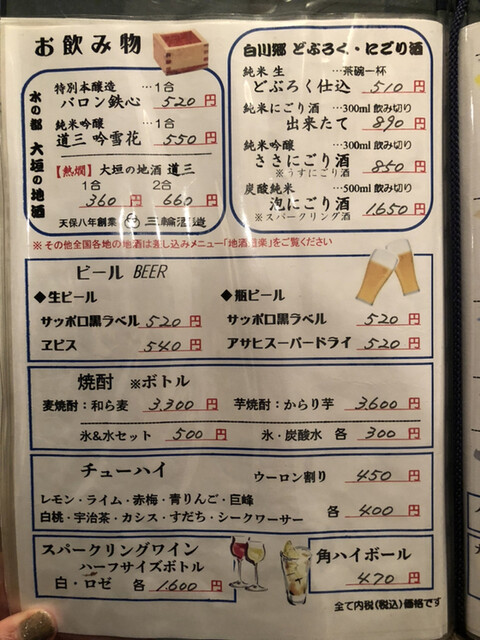 お飲み物
水の都 大垣の地酒
特別本醸造 …1合
バロン鉄心 520円
純米吟醸 …1合
道三 吟雪花 550円
【熱燗】大垣の地酒 道三
1合 2合
360円 660円
天保八年創業 三輪酒造
白川郷 どぶろく・にごり酒
純米 生 …茶碗一杯
どぶろく仕込 510円
純米にごり酒 …300ml 飲み切り
出来たて 890円
純米吟醸 …300ml 飲み切り
ささにごり酒 850円
※うすにごり酒
炭酸純米 …500ml 飲み切り
泡にごり酒 1.650円
※スパークリング酒
※その他全国各地の地酒は差し込みメニュー「地酒道楽」をご覧ください
ビール BEER
◆生ビール
サッポロ黒ラベル 520円
ヱビス 540円
◆瓶ビール
サッポロ黒ラベル 520円
アサヒスーパードライ 520円
焼酎 ※ボトル
麦焼酎：和ら麦 3.300円 芋焼酎：からり芋 3.600円
氷&水セット 500円 氷・炭酸水 各 300円
チューハイ ウーロン割り 450円
レモン・ライム・赤梅・青りんご・巨峰
白桃・宇治茶・カシス・すだち・シークワーサー 各 400円
スパークリングワイン
ハーフサイズボトル
白・ロゼ 各 1.600円
角ハイボール
470円
全て内税（税込）価格です